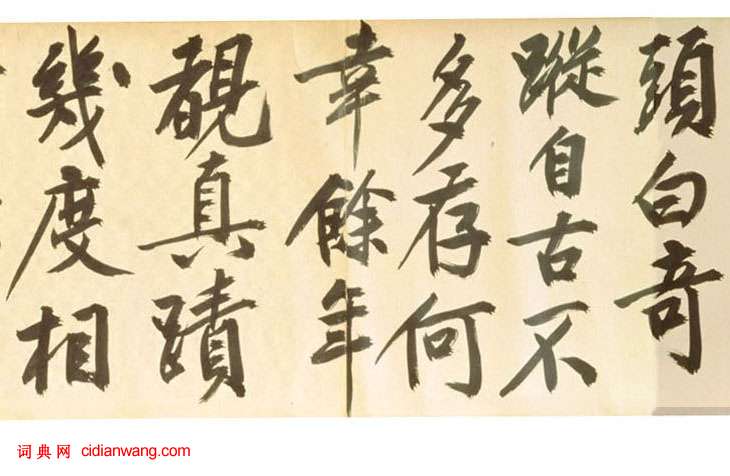 頭白奇
蹤自古不
多存何
幸餘年
覩真蹟
幾度相
词典网 cidianwang.com